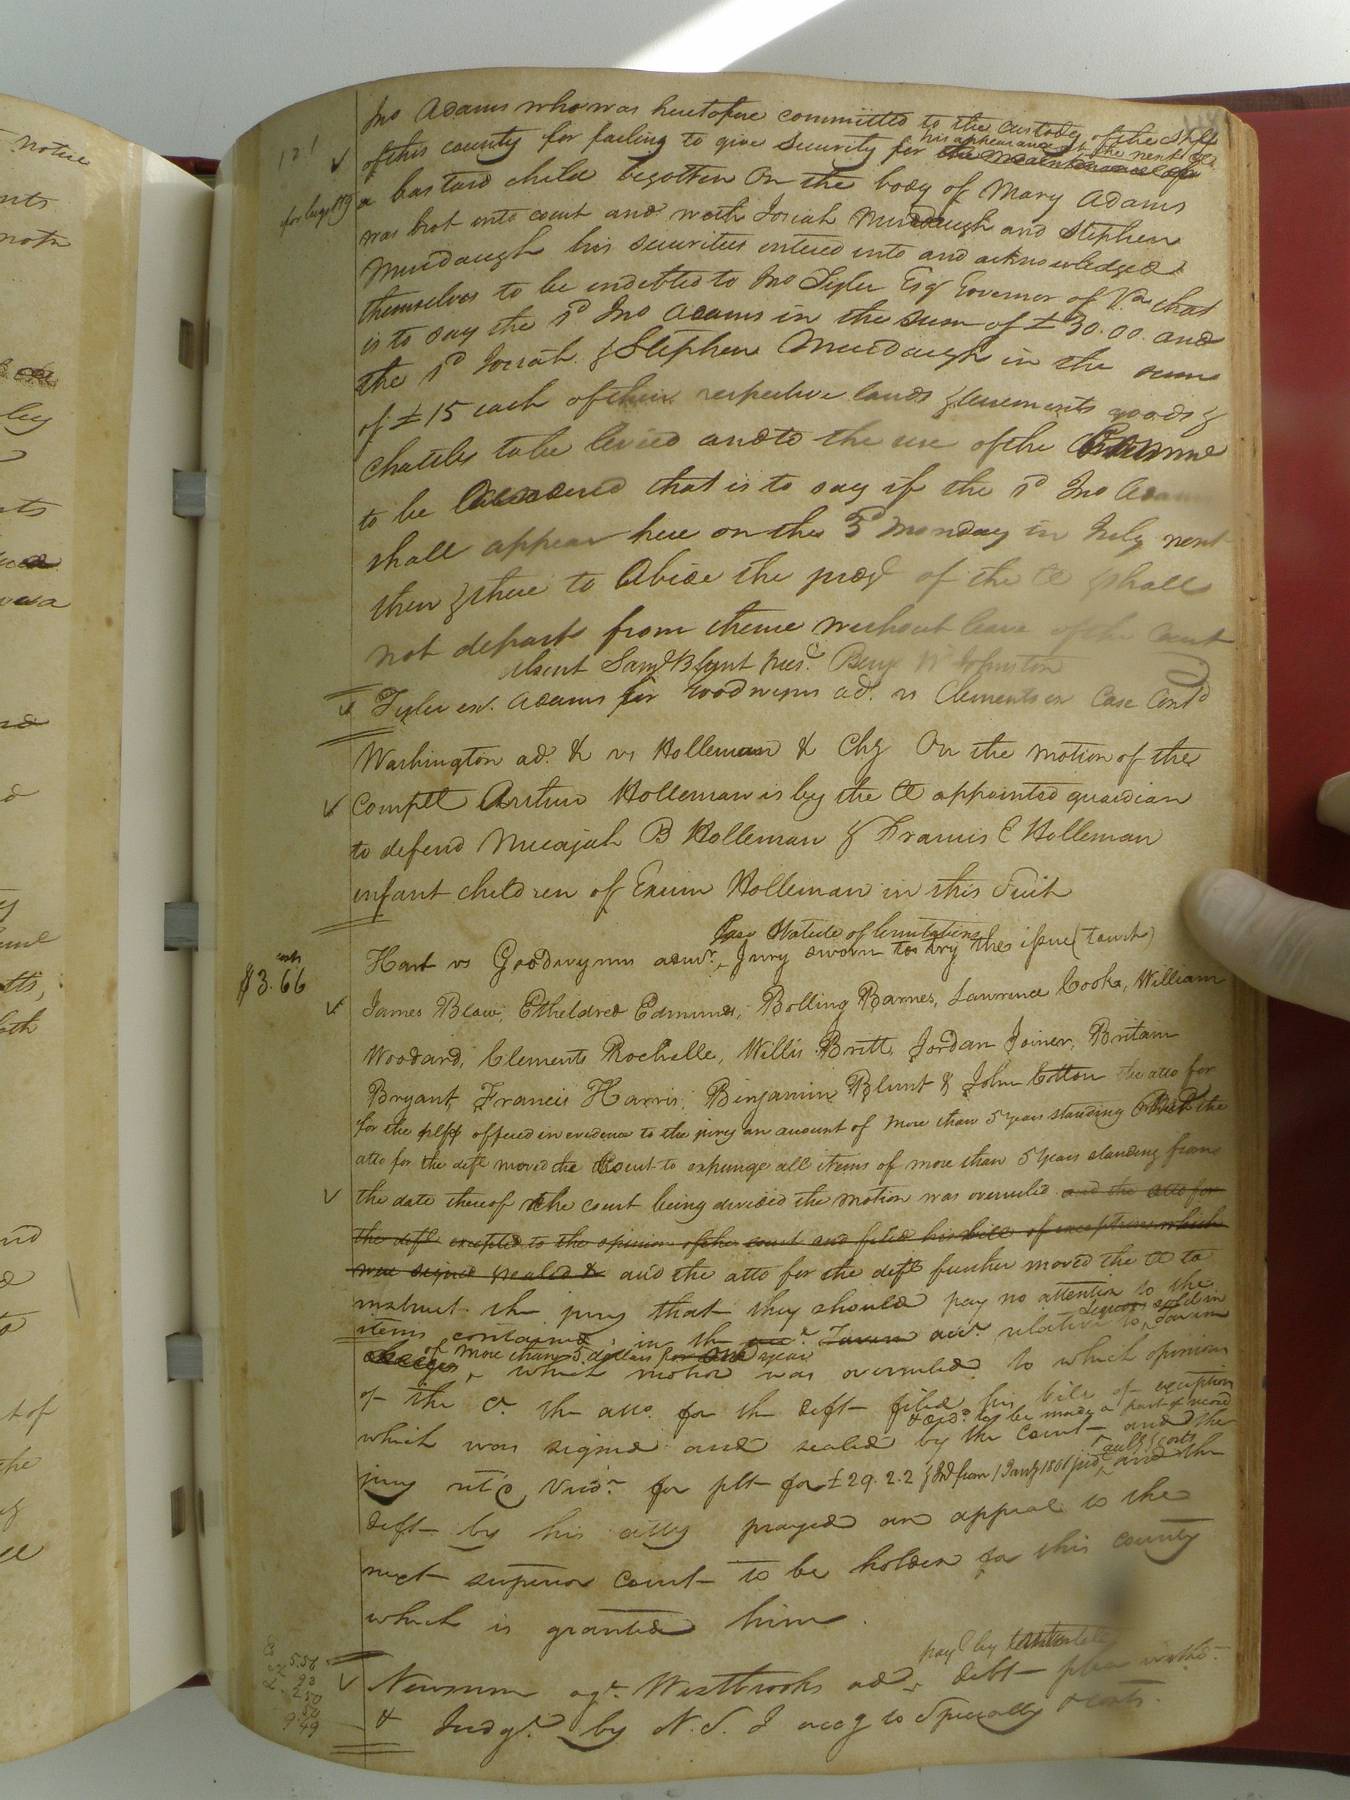 Jno Adams who was heretofore committed to the custody of the Shff
of this county for failing to give security for his appearance at the next Ct
the maintenance of
a bastard child begotten on the body of Mary Adams
was brot into court and with Josiah Murdaugh and Stephen
Murdaugh his securities entered into and acknowledged
themselves to be indebted to Jno Tyler Esq Governor of Va that
is to say the sd Jno Adams in the sum of £ 30.00 and
the sd Josiah & Stephen Murdaugh in the sum
of £15 each of their respective lands & tenements goods &
chattles to be levied and to the use of the
to be that is to say if the sd Jno Adams
shall appear here on the 3d Monday in July next
then & there to Abide the of the Ct & shall
not depart from thence without leave of the Court
absent Saml Blunt Benj W Johnston
Tyler ex. Adams for Goodwynn ad. vs Clements ex Case Contd
Washington ad. & vs Holleman & Chy On the motion of the
complt Arthur Holleman is by the Ct appointed guardian
to defend Micajah B Holleman & Francis E Holleman
infant children of Exum Holleman in this Suit
Statute of limitations
Hart vs Goodwynns admr. Jury sworn to try the issue (to wit)
costs
$3.66
James Blow, Etheldred Edmunds, Bolling Barnes, Lawrence Cooke, William
Woodard, Clements Rochelle, Willis Britt, Jordan Joiner, Britain
Bryant, Francis Harris, Benjamin Blunt & John Cotton the atto for
for the plff offered in evidence to the jury an account of more than 5 years standing the
atto for the deft moved the Court to expunge all items of more than 5 years standing from
the date thereof the court being divided the motion was overruled and the atto for
the deft excepted to the opinion of the court and filed his bill of exceptions which
was signed sealed & and the atto for the deft further moved the Ct to
instruct the jury that they should pay no attention to the
items contained in the Tavern acct. relative to liquors sold in Tavern
of more than 5 dollars for one year
which motion was overruled to which opinion
of the Ct. the atto. for the deft filed his bill of exception
& ordd. to be made a part of record
which was signed and sealed by the Court and the
jury retd Verdt. for plt for £29.2.2 & Int from 1 Jany 1801 and the
deft by his atty prayed an appeal to the
next superior Court to be holden for this county
which is granted him.
Newsum agt. Westbrooks ad. debt plea withd.
& Judgt. by N. S. I accg to Specialty & costs.
5.56
93
2.50
50
9.49